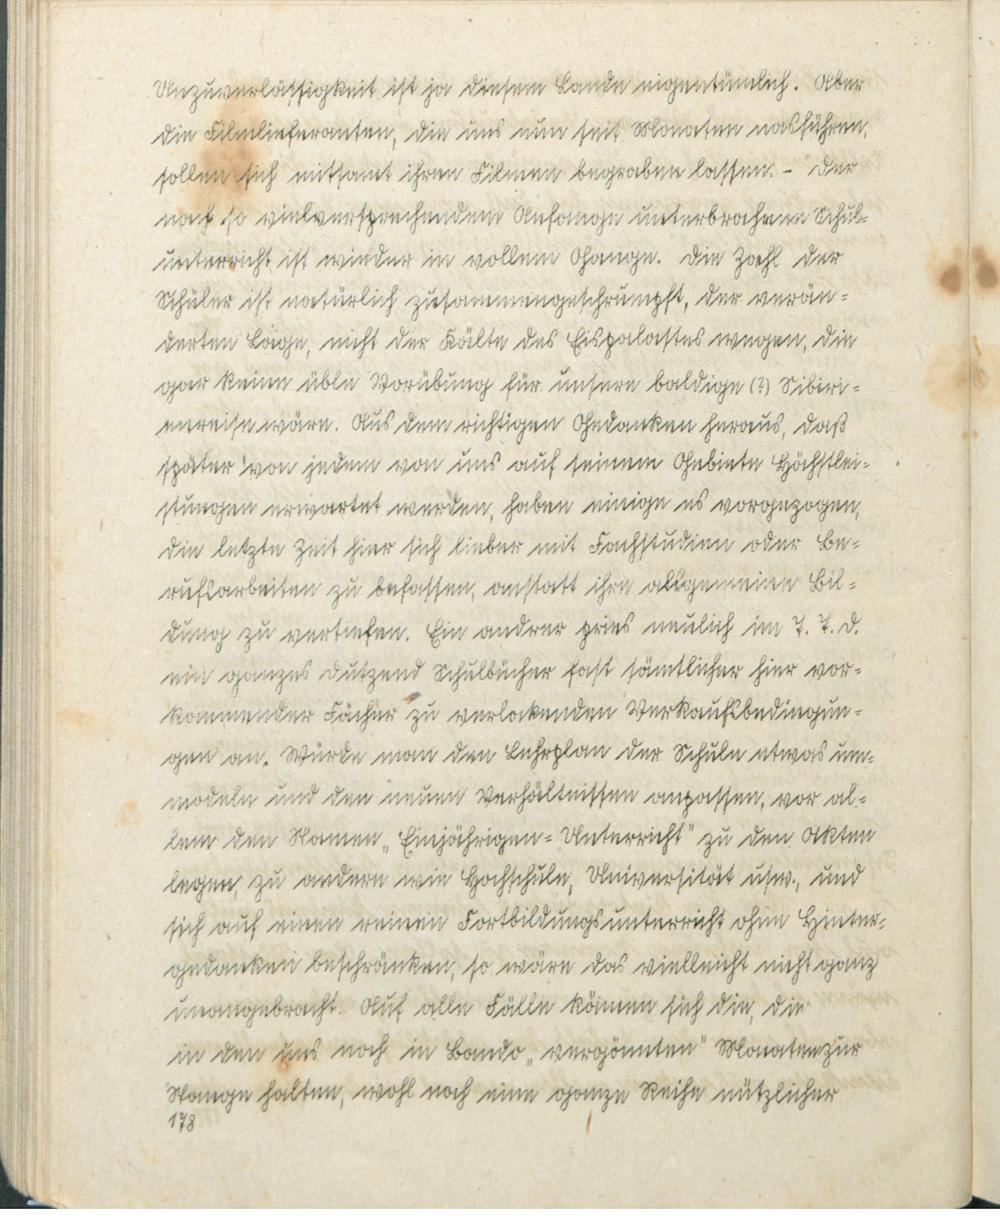 Unzuverlässigkeit ist ja diesem Lande eigentümlich. Aber
die Filmlieferanten, die uns nun seit Monaten nasführen,
sollen sich mitsamt ihren Filmen begraben lassen. - Der
nach so vielversprechendem Anfange unterbrochene Schul-
unterricht ist wieder in vollem Gange. Die Zahl der
Schüler ist natürlich zusammengeschrumpft, der verän-
derten Lage, nicht der Kälte des Eispalastes wegen, die
gar keine üble Vorübung für unsere baldige (?) Sibiri-
enreise wäre. Aus dem richtigen Gedanken heraus, daß
später von jedem von uns auf seinem Gebiete Höchstlei-
stungen erwartet werden, haben einige es vorgezogen,
die letzte Zeit hier sich lieber mit Fachstudien oder Be-
rufsarbeiten zu befassen, anstatt ihre allgemeine Bil-
dung zu vertiefen. Ein andrer pries neulich im T. T. B.
ein ganzes Dutzend Schulbücher fast sämtlicher hier vor-
kommender Fächer zu verlockenden Verkaufsbedingun-
gen an. Würde man den Lehrplan der Schule etwas um-
modeln und den neuen Verhältnissen anpassen, vor al-
lem den Namen „Einjährigen-Unterricht" zu den Akten
legen, zu andern wie Hochschule, Universität usw., und
sich auf einen reinen Fortbildungsunterricht ohne Hinter-
gedanken beschränken, so wäre das vielleicht nicht ganz
unangebracht. Auf alle Fälle können sich die, die
in den uns noch in Bando „vergönnten" Monaten zur
Stange halten, wohl noch eine ganze Reihe nützlicher
178